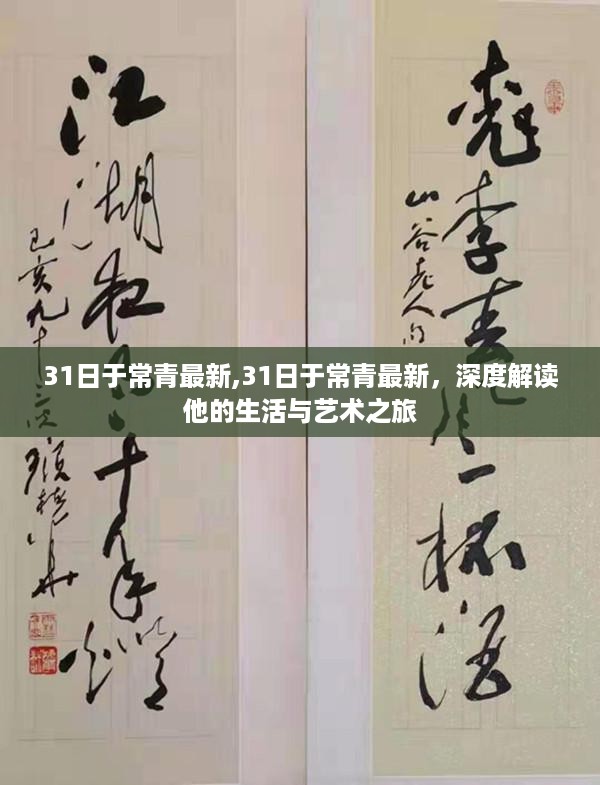 桃李春一杯酒
山谷老人
江湖夜十年燈
己亥九十
31日于常青最新,31日于常青最新，深度解读
他的生活与艺术之旅